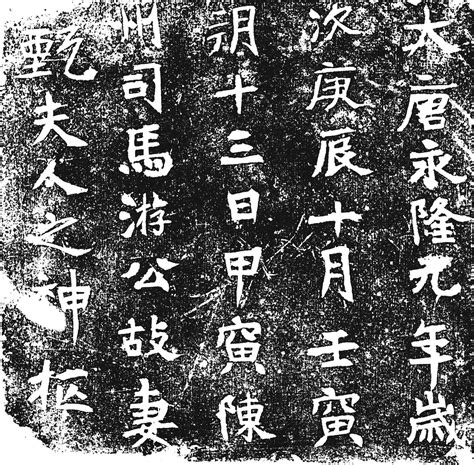 大唐永隆元年歲
次庚辰十月壬寅
朔十三日甲寅陳
州司馬游公故妻
甄夫人之神柩